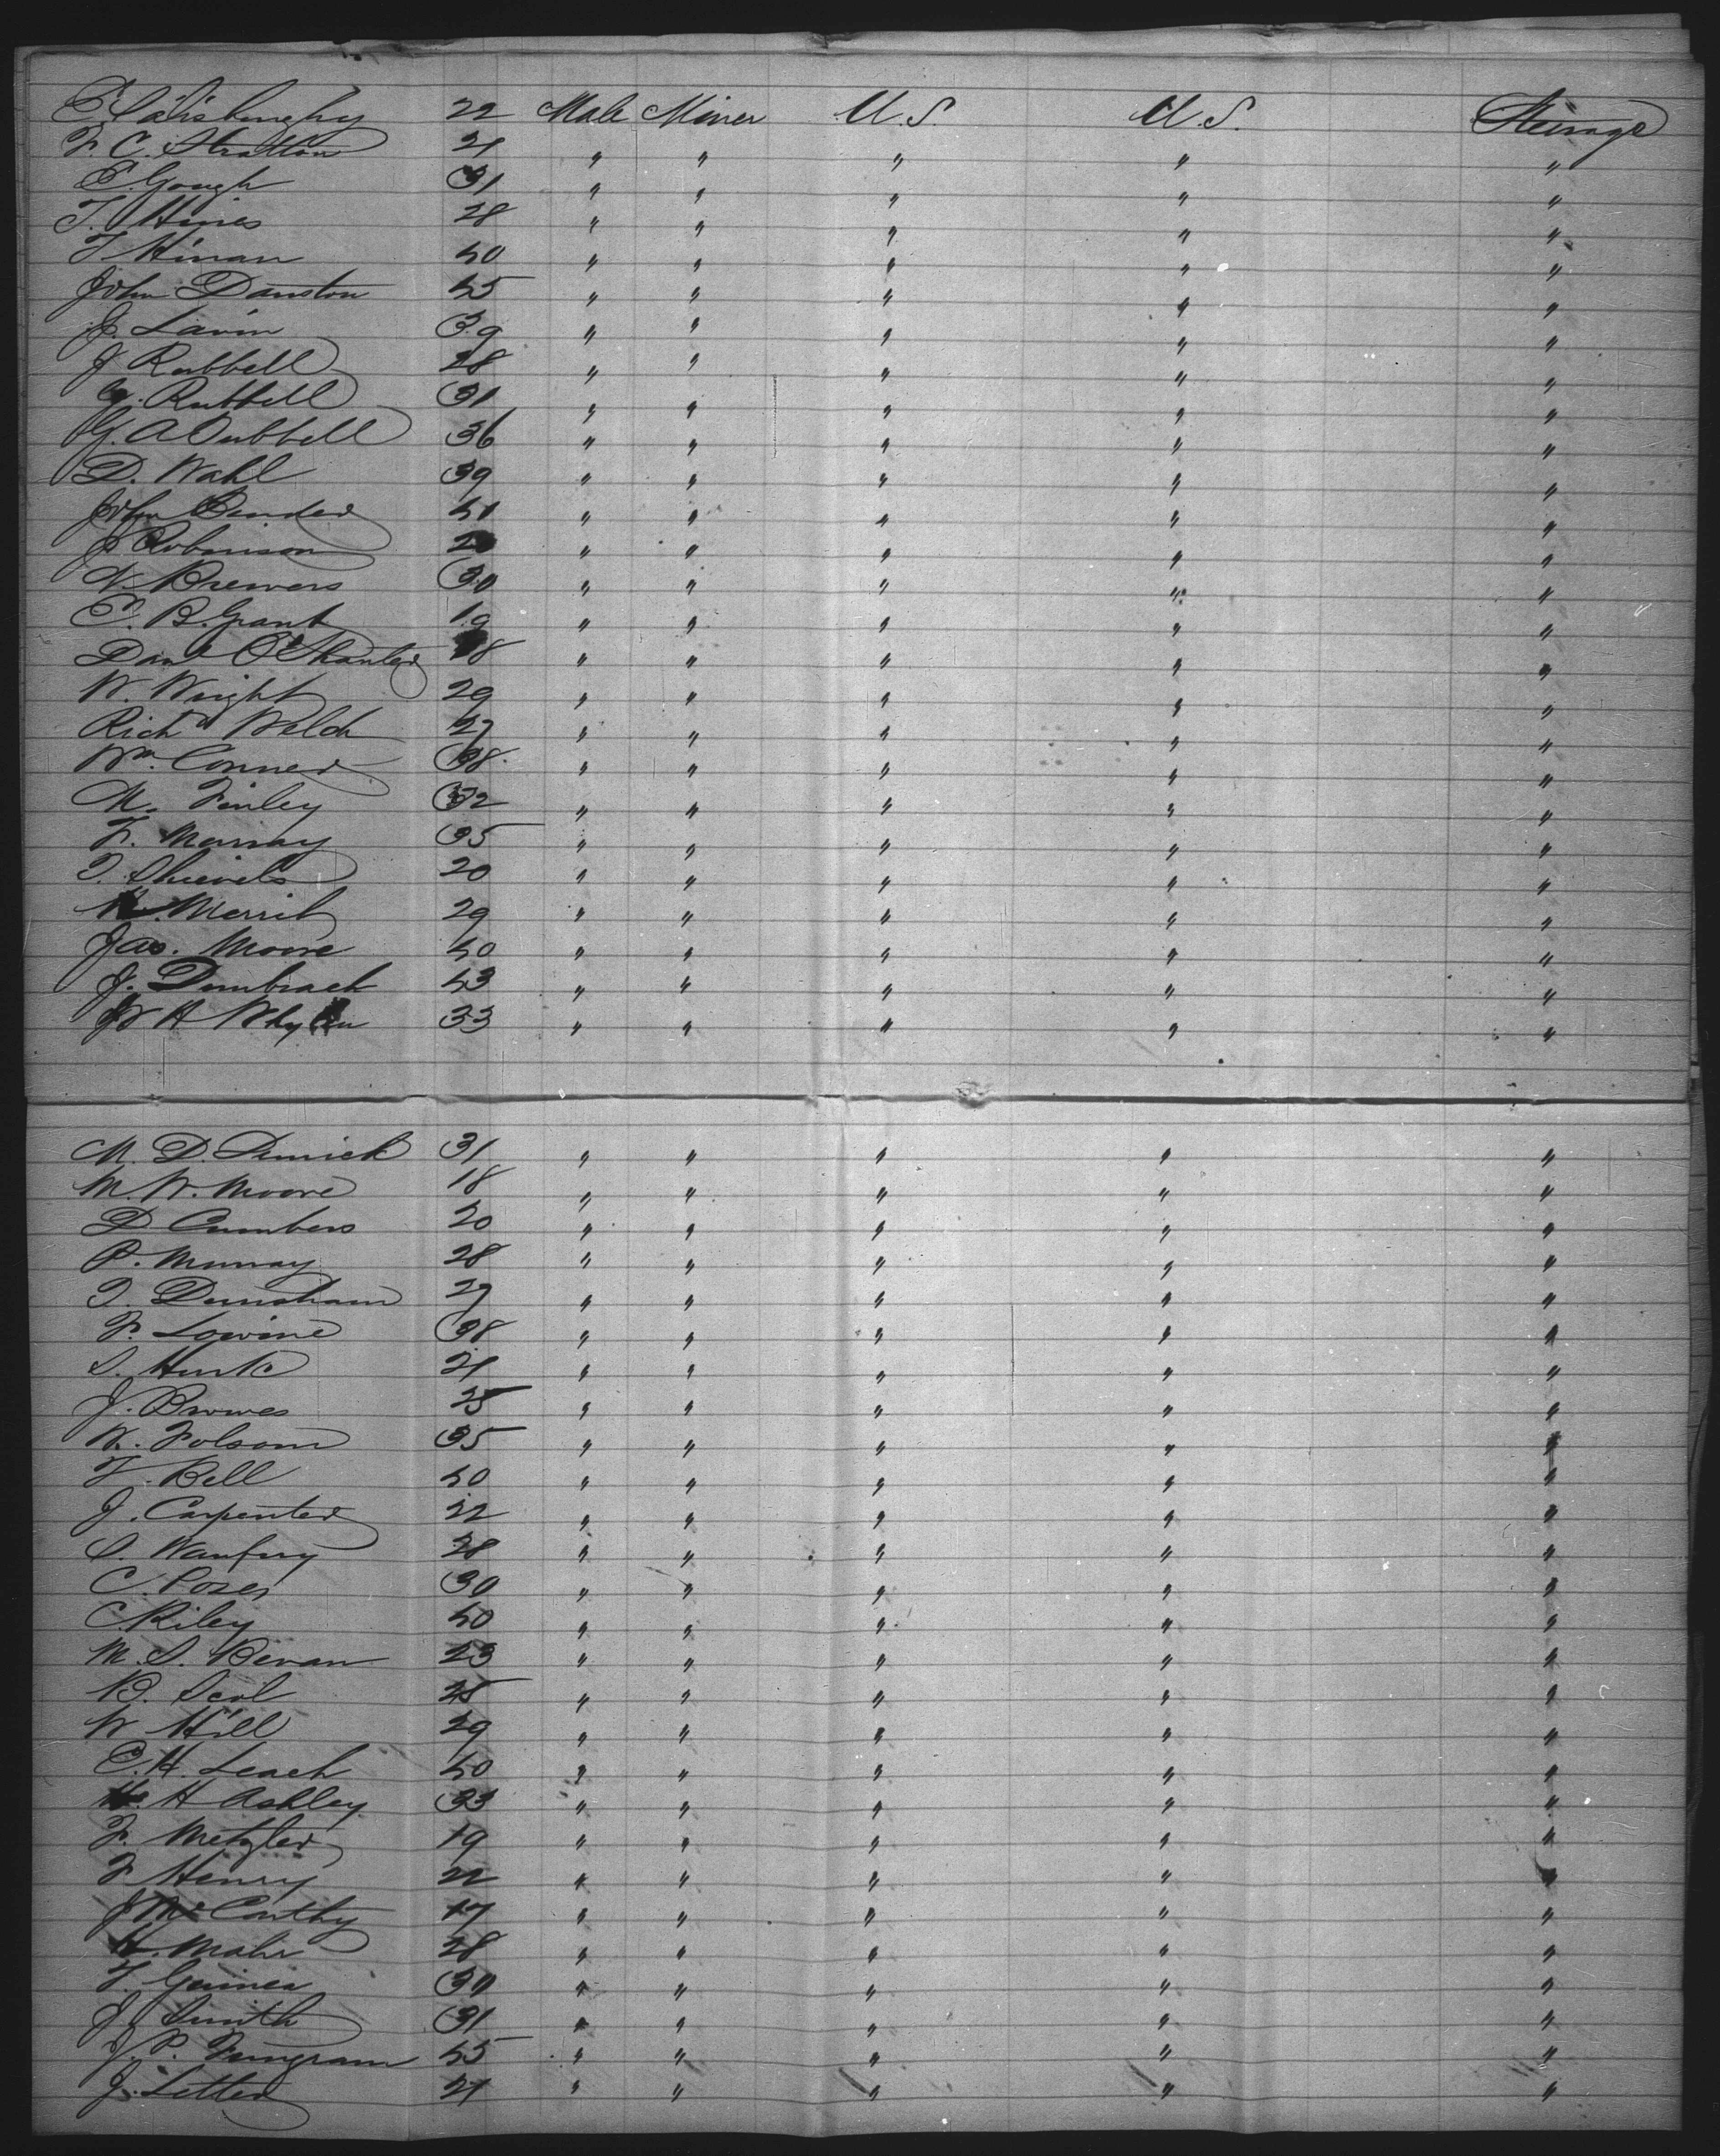 E. Salisburghy 22 Male Miner U.S. U.S. Steerage
F. C. Stratton 21 " " " " "
E. Gough 31 " " " " "
T. Hines 28 " " " " "
T Hinan 40 " " " " "
John Danston 45 " " " " "
J. Lavin 39 " " " " "
J Rubbell 28 " " " " "
G. Rubbell 31 " " " " "
G. A Dubbell 36 " " " " "
D. Wahl 39 " " " " "
John Bender 41 " " " " "
J Robinson " " " " "
N. Brewers 30 " " " " "
C. B. Grant 19 " " " " "
Danl O'Shanter 18 " " " " "
W. Wright 29 " " " " "
Richd Welch 27 " " " " "
Wm Conner 38 " " " " "
M. Finley 32 " " " " "
F. Murray 35 " " " " "
T. Shievels 20 " " " " "
Merrit 29 " " " " "
Jas. Moore 40 " " " " "
J. Dumbrach 43 " " " " "
W H 33 " " " " "
M. D. Dimick 31 " " " " "
M. W. Moore 18 " " " " "
D Cumbers 20 " " " " "
P. Murray 28 " " " " "
T. Dunsham 27 " " " " "
F. Lowine 38 " " " " "
S. Hunk 21 " " " " "
J. Browes 25 " " " " "
W. Folsom 35 " " " " "
F. Bell 40 " " " " "
J. Carpenter 22 " " " " "
S. 28 " " " " "
C. Poser 30 " " " " "
C. Riley 40 " " " " "
M. S. Bevan 23 " " " " "
B. Seol 25 " " " " "
W Hill 29 " " " " "
C. H. Leach 40 " " " " "
H Ashley 33 " " " " "
F. Metzler 19 " " " " "
F Henry 22 " " " " "
J McCarthy 17 " " " " "
H. Mahr 28 " " " " "
F. Guinea 30 " " " " "
J Smith 31 " " " " "
J. P. Fingram 45 " " " " "
J. Letter 21 " " " " "